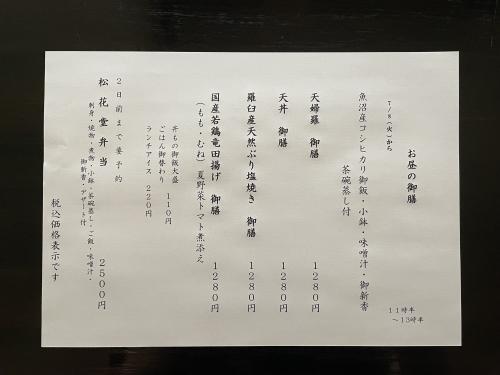 お昼の御膳
11時半
～13時半
7/8(火)から
魚沼産コシヒカリ御飯・小鉢・味噌汁・御新香
茶碗蒸し付
天婦羅　御膳　1280円
天丼　御膳　1280円
羅臼産天然ぶり塩焼き　御膳　1280円
国産若鶏竜田揚げ　御膳　1280円
(もも・むね)夏野菜トマト煮添え
丼もの御飯大盛
ごはん御替わり　110円
ランチアイス　220円
2日前まで要予約
松花堂弁当　2500円
刺身・焼物・煮物・小鉢・茶碗蒸し・ご飯・味噌汁・
御新香・デザート付
税込価格表示です